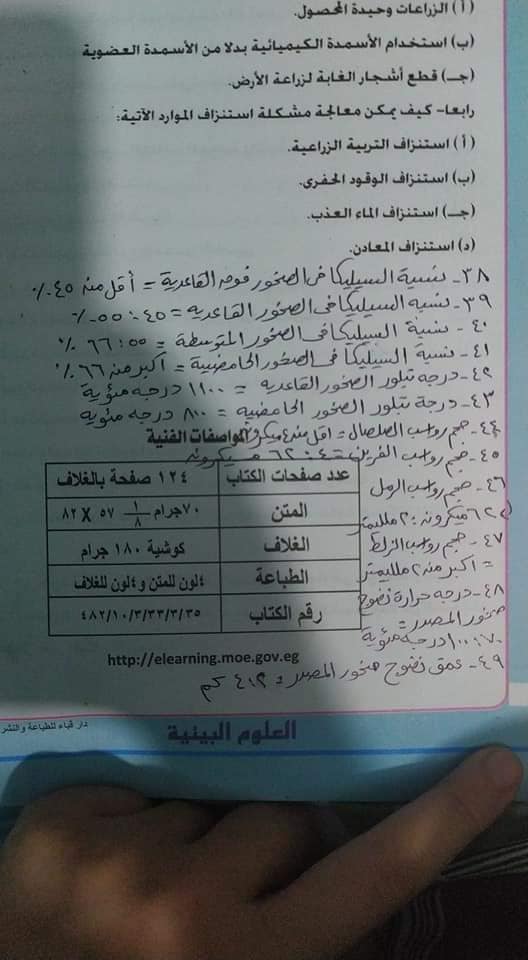 (أ) الزراعات وحيدة المحصول.
(ب) استخدام الأسمدة الكيميائية بدلا من الأسمدة العضوية
(جـ) قطع أشجار الغابة لزراعة الأرض.
رابعا- كيف يمكن معالجة مشكلة استنزاف الموارد الآتية:
(أ) استنزاف التربية الزراعية.
(ب) استنزاف الوقود الحفرى.
(جـ) استنزاف الماء العذب.
(د) استنزاف المعادن.
٣٨- نسبة السيليكا فى الصخور فوق القاعدية = أقل من ٤٥٪
٣٩- نسبه السيليكا فى الصخور القاعديه = ٤٥ : ٥٥٪
٤٠- نسبة السيليكا فى الصخور المتوسطة = ٥٥ : ٦٦٪
٤١- نسبة السيليكا فى الصخور الحامضية = أكبر من ٦٦٪
٤٢- درجه تبلور الصخور القاعديه = ١١٠٠ درجه مئوية
٤٣- درجة تبلور الصخور الحامضيه = ٨٠٠ درجه مئويه
٤٤- حجم رواسب الصلصال = اقل من ٤ ميكرون
المواصفات الفنية
٤٥- حجم رواسب الغرين = ٤ : ٦٢ ميكرون
عدد صفحات الكتاب ١٢٤ صفحة بالغلاف
المتن ٧٠جرام ١/٨ ٥٧ X ٨٢
الغلاف كوشية ١٨٠ جرام
الطباعة ٤لون للمتن و٤لون للغلاف
رقم الكتاب ٤٨٢/١٠/٣/٣٣/٣/٣٥
٤٦- حجم رواسب الرمل
٦٢ ميكرون : ٢ ملليمتر
٤٧- حجم رواسب الزلط
= أكبر من ٢ ملليمتر
٤٨- درجه حرارة نضوج
صخور المصدر =
٧٠ : ١٠٠ درجه مئوية
http://elearning.moe.gov.eg
٤٩- عمق نضوج صخور المصدر = ٢ : ٤ كم
العلوم البيئية
دار قباء للطباعة والنشر